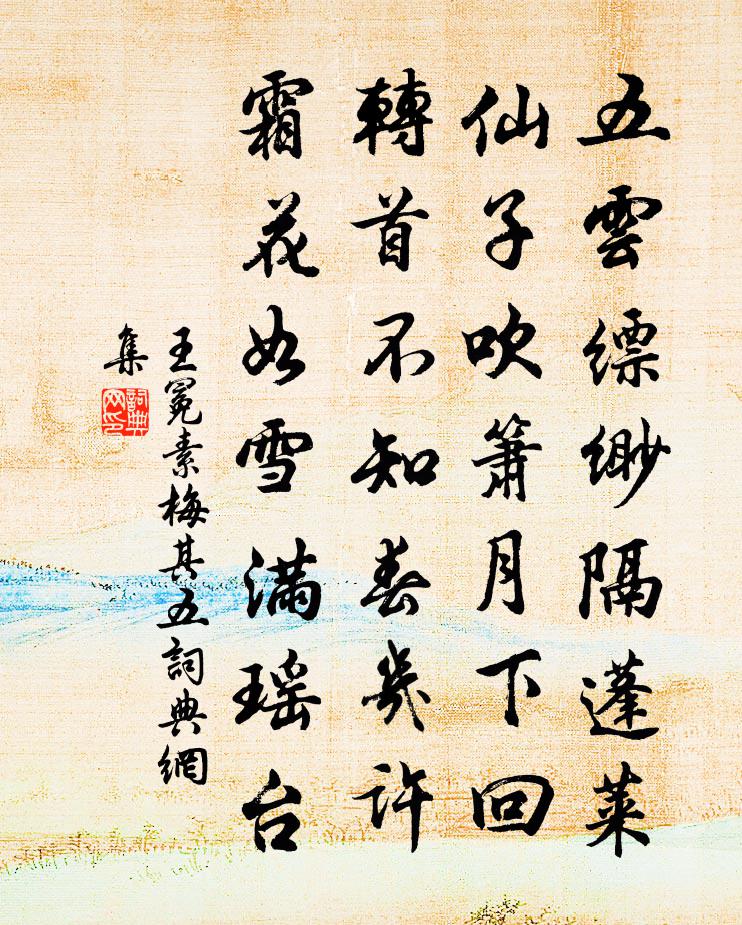 五雲縹緲隔蓬萊
仙子吹簫月下回
轉首不知春幾許
霜花如雪滿瑶台
王冕素梅其五詞典網
集
詞典
网印